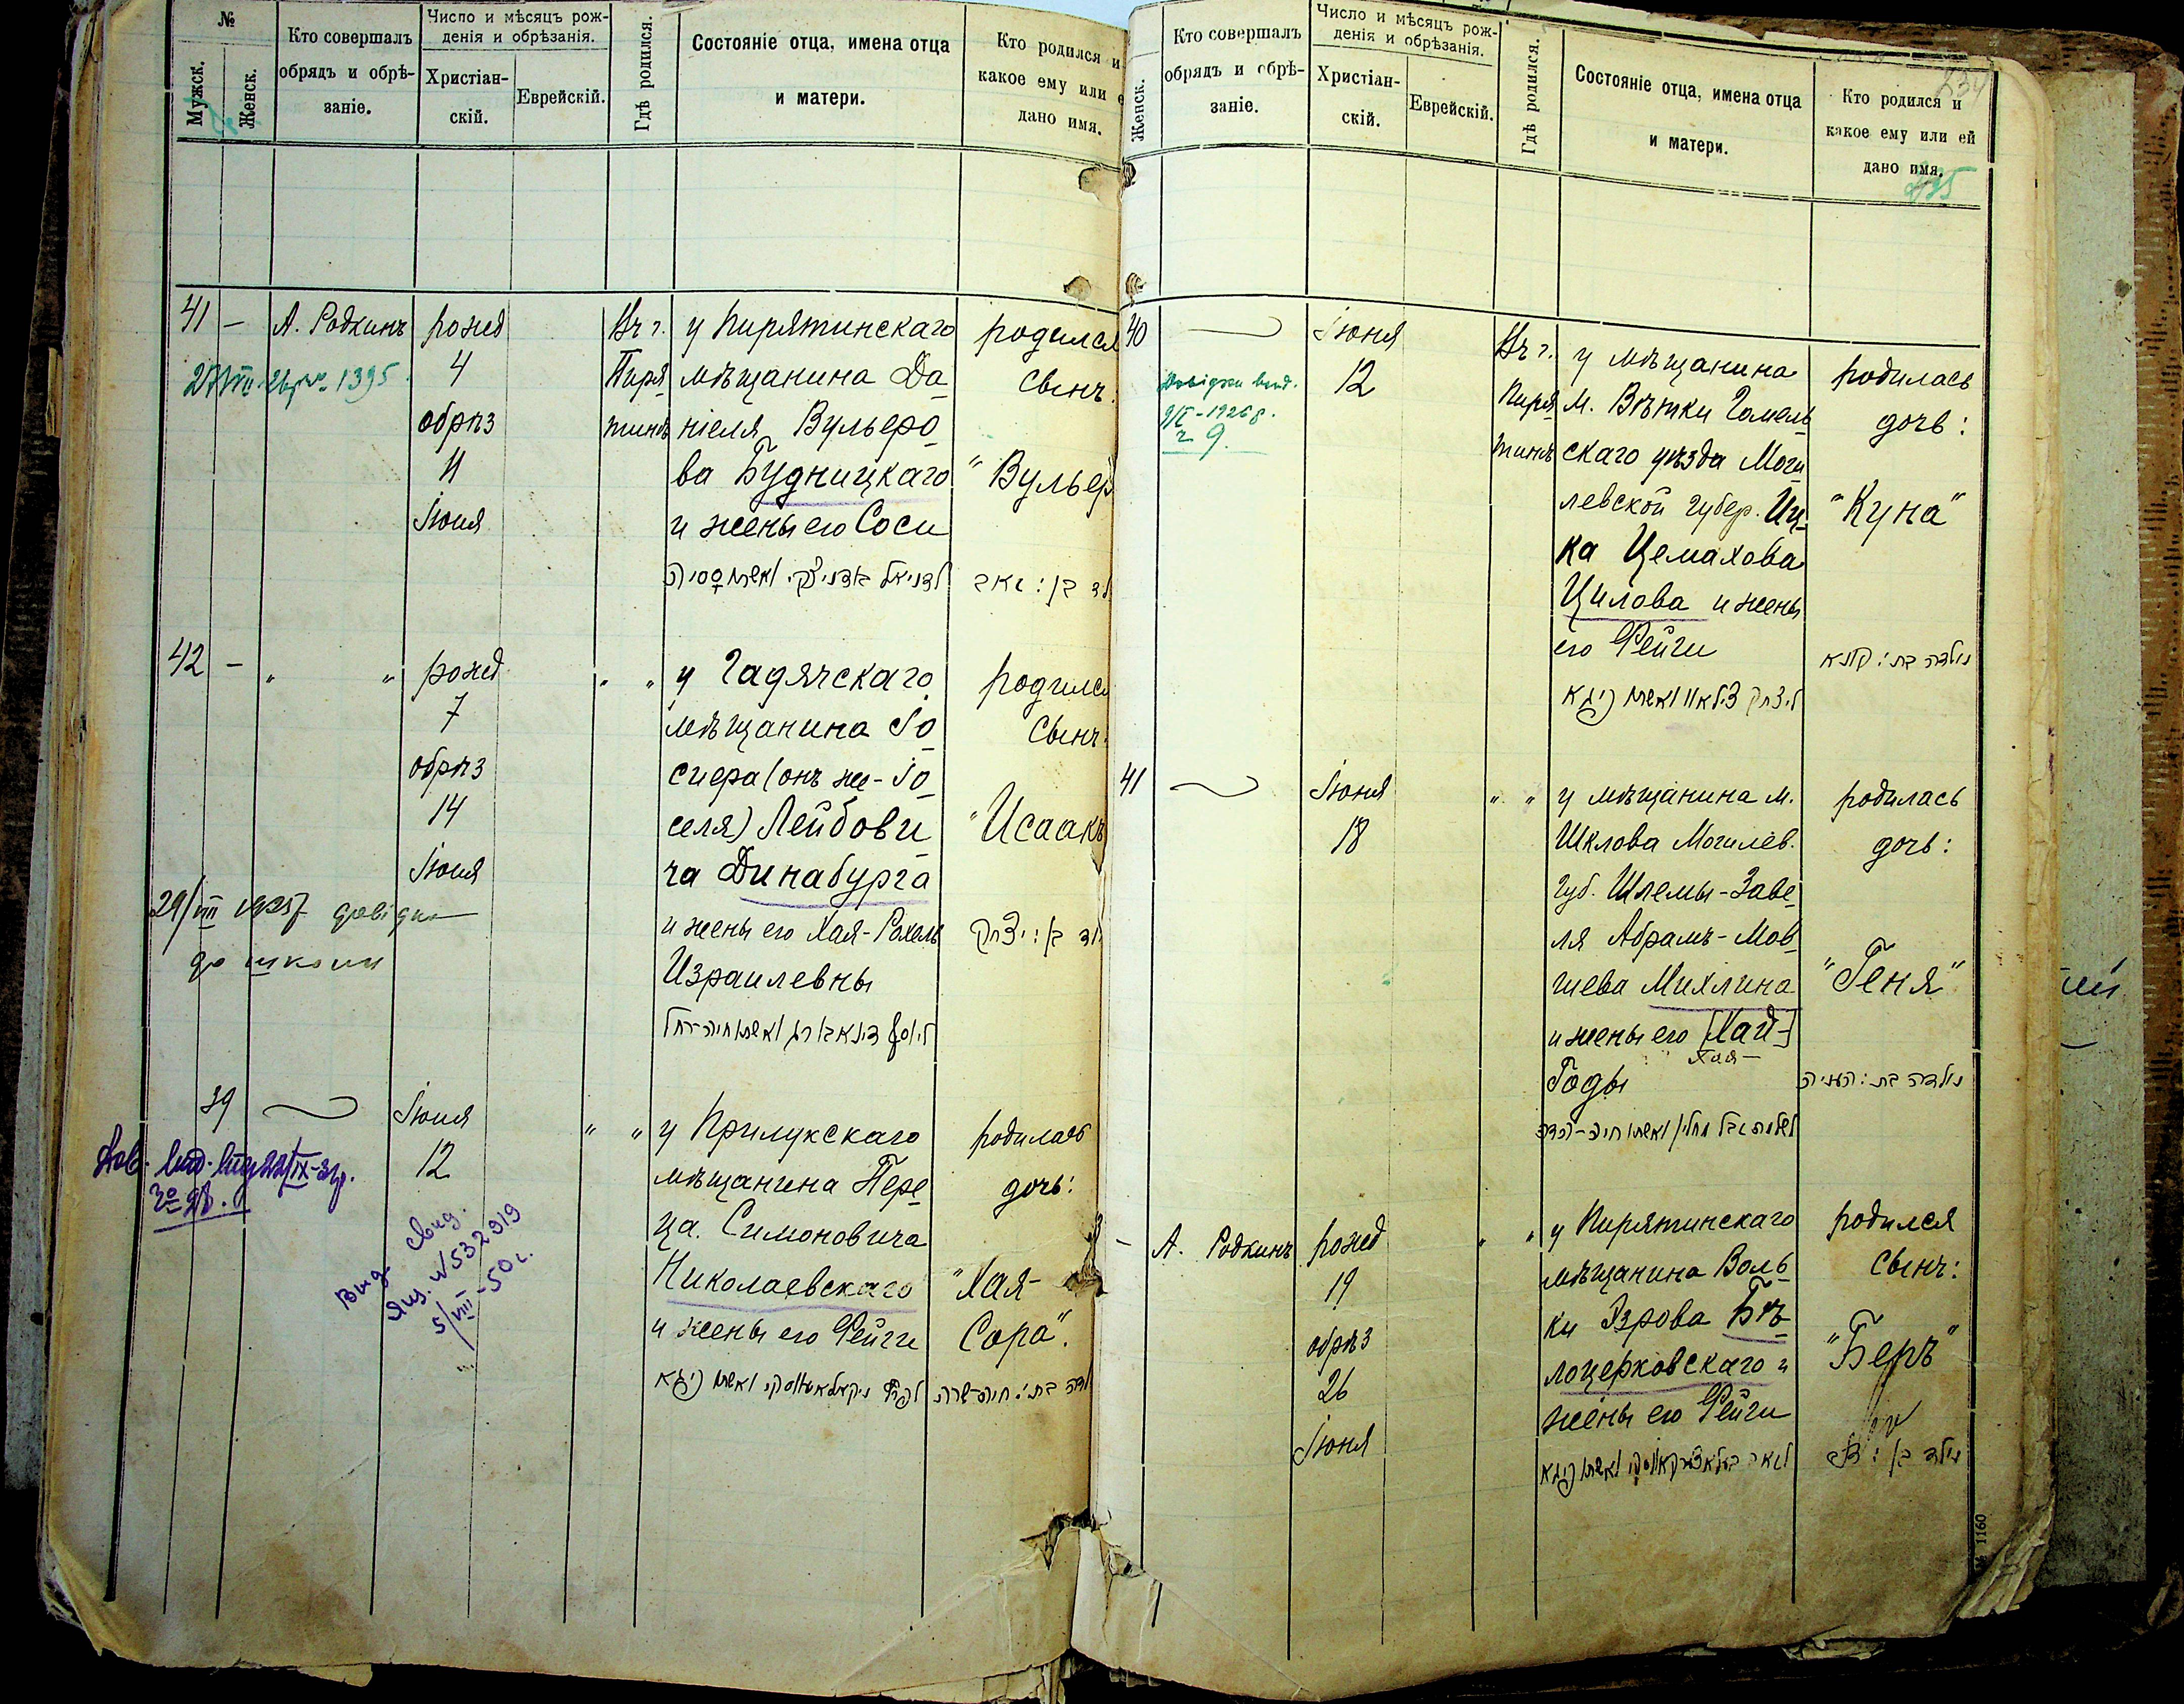 №
Мужск.
Женск.
Кто совершалъ
обрядъ и обрѣ-
заніе.
Число и мѣсяцъ рож-
денія и обрѣзанія.
Христіан-
скій.
Еврейскій.
Гдѣ родился.
Состояніе отца, имена отца
и матери.
Кто родился и
какое ему или
дано имя.
41 — А. Родкинъ
рожд
4
обрѣз
11
Іюня
Въ г.
Пиря
тинѣ
у Пирятинскаго
мѣщанина Да
ніеля Вульеро
ва Будницкаго
и жены его Соси
родился
сынъ:
"Вульеръ
42 — " "
рожд
7
обрѣз
14
Іюня
" "
у Гадячскаго
мѣщанина Іо
сиера (онъ же-Іо
селя) Лейбови
ча Динабурга
и жены его Хая-Рахель
Израилевны
родился
сынъ:
"Исаакъ
יצחק
29/VIII 1925 довідка
до школи
39
Іюня
12
" "
у Прилукскаго
мѣщанина Пере
ца Симоновича
Николаевскаго
и жены его Фейги
родилась
дочь:
"Хая-
Сора".
вид. свид.
№532919
5/VIII-50 г.
Женск.
Кто совершалъ
обрядъ и обрѣ-
заніе.
Число и мѣсяцъ рож-
денія и обрѣзанія.
Христіан-
скій.
Еврейскій.
Гдѣ родился.
Состояніе отца, имена отца
и матери.
Кто родился и
какое ему или ей
дано имя.
40
Іюня
12
Въ г.
Пиря
тинѣ
у мѣщанина
м. Вѣтки Гомель
скаго уѣзда Моги
левской губер. Иц-
ка Цемахова
Цилова и жены
его Фейги
родилась
дочь:
"Куна"
נולדה בת: קונא
41
Іюня
18
" "
у мѣщанина м.
Шклова Могилев.
губ. Шлемы-Заве
ля Абрамъ-Мов
шева Михлина
и жены его [Хай-]
Хая-
Годы
родилась
дочь:
"Геня"
נולדה בת: העניה
— А. Родкинъ
рожд
19
обрѣз
26
Іюня
" "
у Пирятинскаго
мѣщанина Воль
ки Эзрова Бѣ
лоцерковскаго и
жены его Фейги
родился
сынъ:
"Беръ"
1160